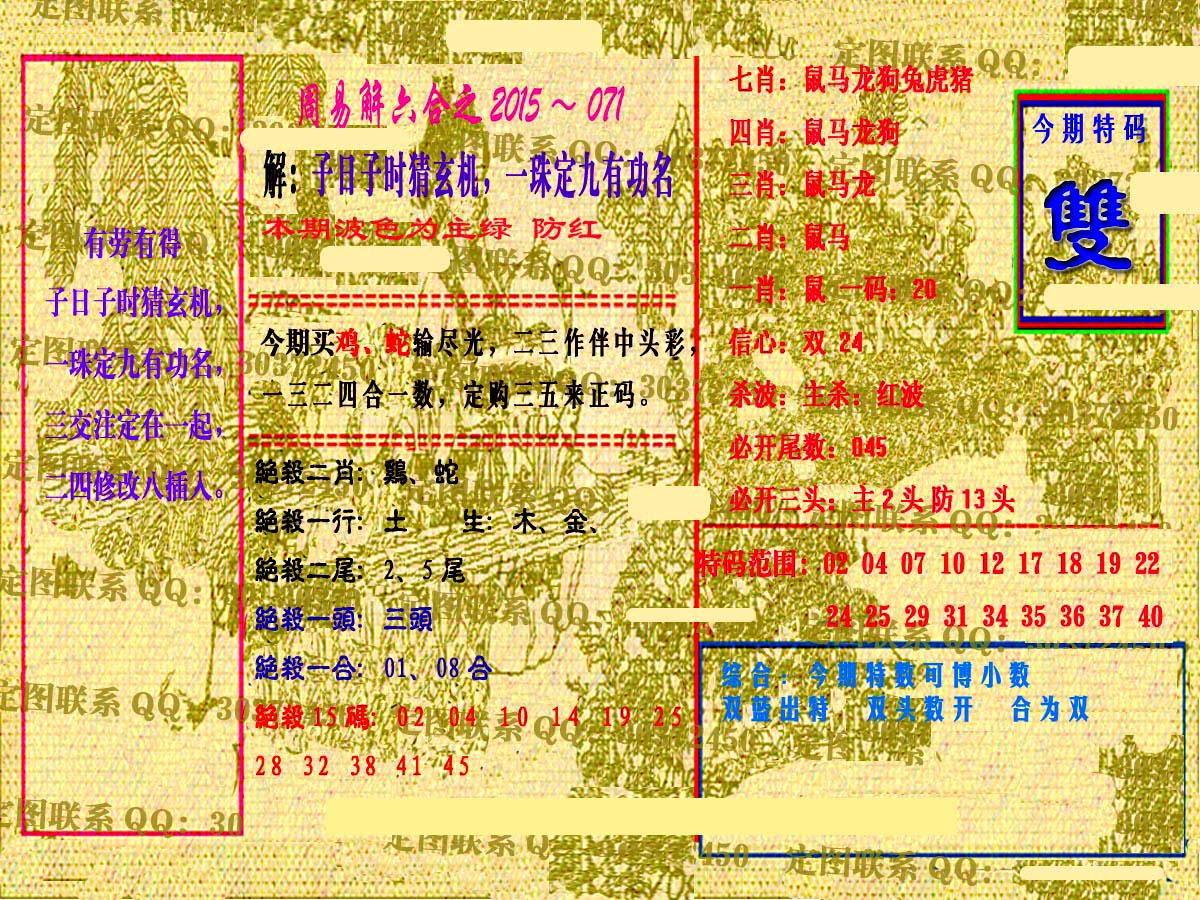 周易解六合之 2015～071
解：子日子时猜玄机，一珠定九有功名
本期波色为主绿 防红
有劳有得
子日子时猜玄机，
一珠定九有功名，
三交注定在一起，
二四修改八插入。
今期买鸡、蛇输尽光，二三作伴中头彩，
一三二四合一数，定购三五来正码。
絕殺二肖：鷄、蛇
絕殺一行：土 生：木、金、
絕殺二尾：2、5 尾
絕殺一頭：三頭
絕殺一合：01、08 合
絕殺 15 碼：02 04 10 14 19 25
28 32 38 41 45
七肖：鼠马龙狗兔虎猪
四肖：鼠马龙狗
三肖：鼠马龙
二肖：鼠马
一肖：鼠 一码：20
信心：双 24
杀波：主杀：红波
必开尾数：045
必开三头：主 2 头 防 13 头
今期特码
雙
特码范围：02 04 07 10 12 17 18 19 22
24 25 29 31 34 35 36 37 40
综合：今期特数可博小数
双蓝出特，双头数开 合为双
定图联系 QQ：